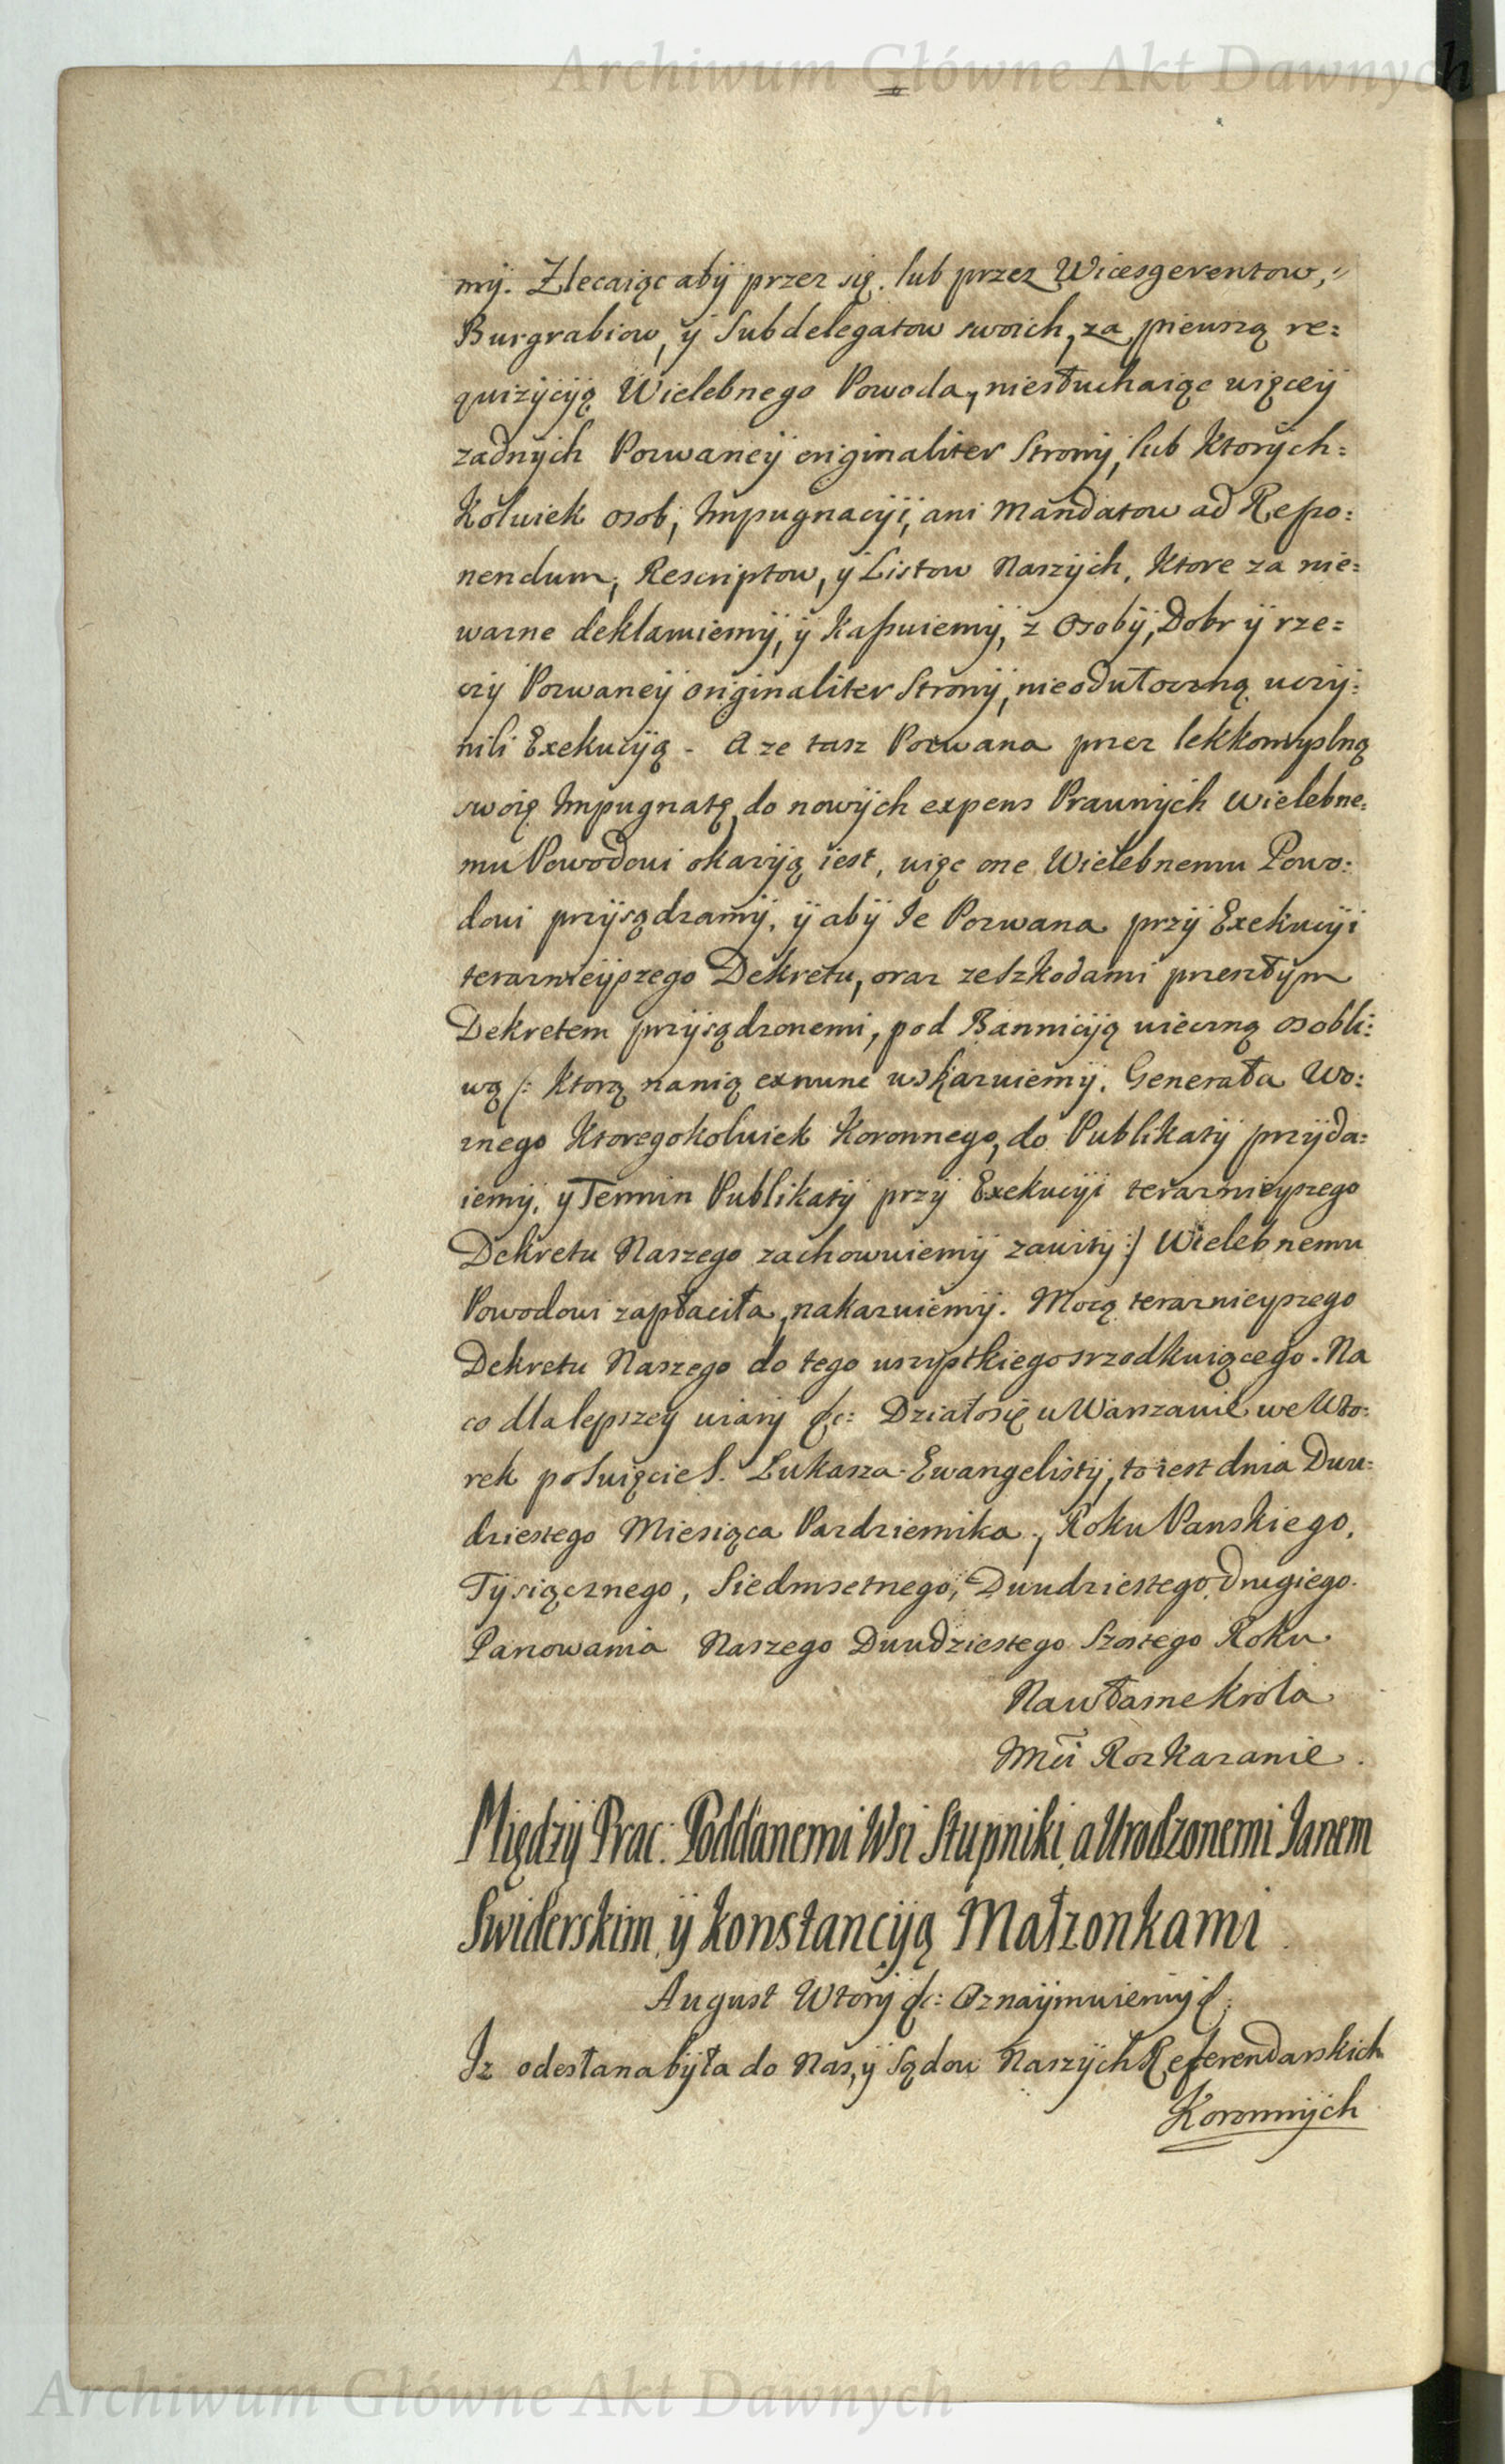 Archiwum Główne Akt Dawnych
mÿ. Zlecaiąc abÿ przez się, lub przez Wicesgerentow,
Burgrabiow, ÿ Subdelegatow swoich, za pierwszą re=
quizÿcÿą Wielebnego Powoda, niesłuchaiąc więceÿ
zadnÿch Pozwaneÿ originaliter Stronÿ, lub Ktorÿch=
Kolwiek osob, Impugnacÿi, ani Mandatow ad Repo=
nendum, Rescriptow, ÿ Listow Naszÿch, Ktore za nie=
wazne deklaruiemÿ, ÿ Kassuiemÿ, z Osobÿ, Dobr ÿ rze=
czÿ Pozwaneÿ originaliter Stronÿ, nieodwłoczną uczÿ=
nili Exekucÿą. A ze taz Pozwana przez lekkomyslną
swoię Impugnatę, do nowÿch expens Prawnÿch Wielebne=
mu Powodowi okazÿą iest, więc one Wielebnemu Powo=
dowi przÿsądzamÿ, ÿ abÿ Je Pozwana przÿ Exekucÿi
teraznieÿszego Dekretu, oraz ze Szkodami przeszłÿm
Dekretem przÿsądzonemi, pod Bannicÿą wieczną osobli=
wą /: Ktorą nanią exnunc wskazuiemÿ, Generała Wo=
znego Ktoregokolwiek Koronnego, do Publikatÿ przÿda=
iemÿ, ÿ Termin Publikatÿ przÿ Exekucÿi teraznieyszego
Dekretu Naszego zachowuiemÿ zawitÿ :/ Wielebnemu
Powodowi zapłaciła, nakazuiemÿ. Mocą teraznieyszego
Dekretu Naszego do tego wszystkiego srzodkuiącego. Na
co dla lepszeÿ wiarÿ &c: Działosię w Warszawie we Wto=
rek po Swięcie S. Lukasza Ewangelistÿ, to iest dnia Dwu=
dziestego Miesiąca Pazdziernika, Roku Panskiego,
Tÿsiącznego, Siedmsetnego, Dwudziestego, Drugiego.
Panowania Naszego Dwudziestego Szostego Roku.
Na własne Krola
Mci Rozkazanie.
Międzÿ Prac: Poddanemi Wsi Słupniki, a Urodzonemi Janem
Swiderskim, ÿ Konstancÿą Małzonkami
August Wtorÿ &c: Oznaÿmuiemÿ &:
Iz odesłana bÿła do Nas, ÿ Sądow Naszÿch Referendarskich
Koronnÿch
Archiwum Główne Akt Dawnych